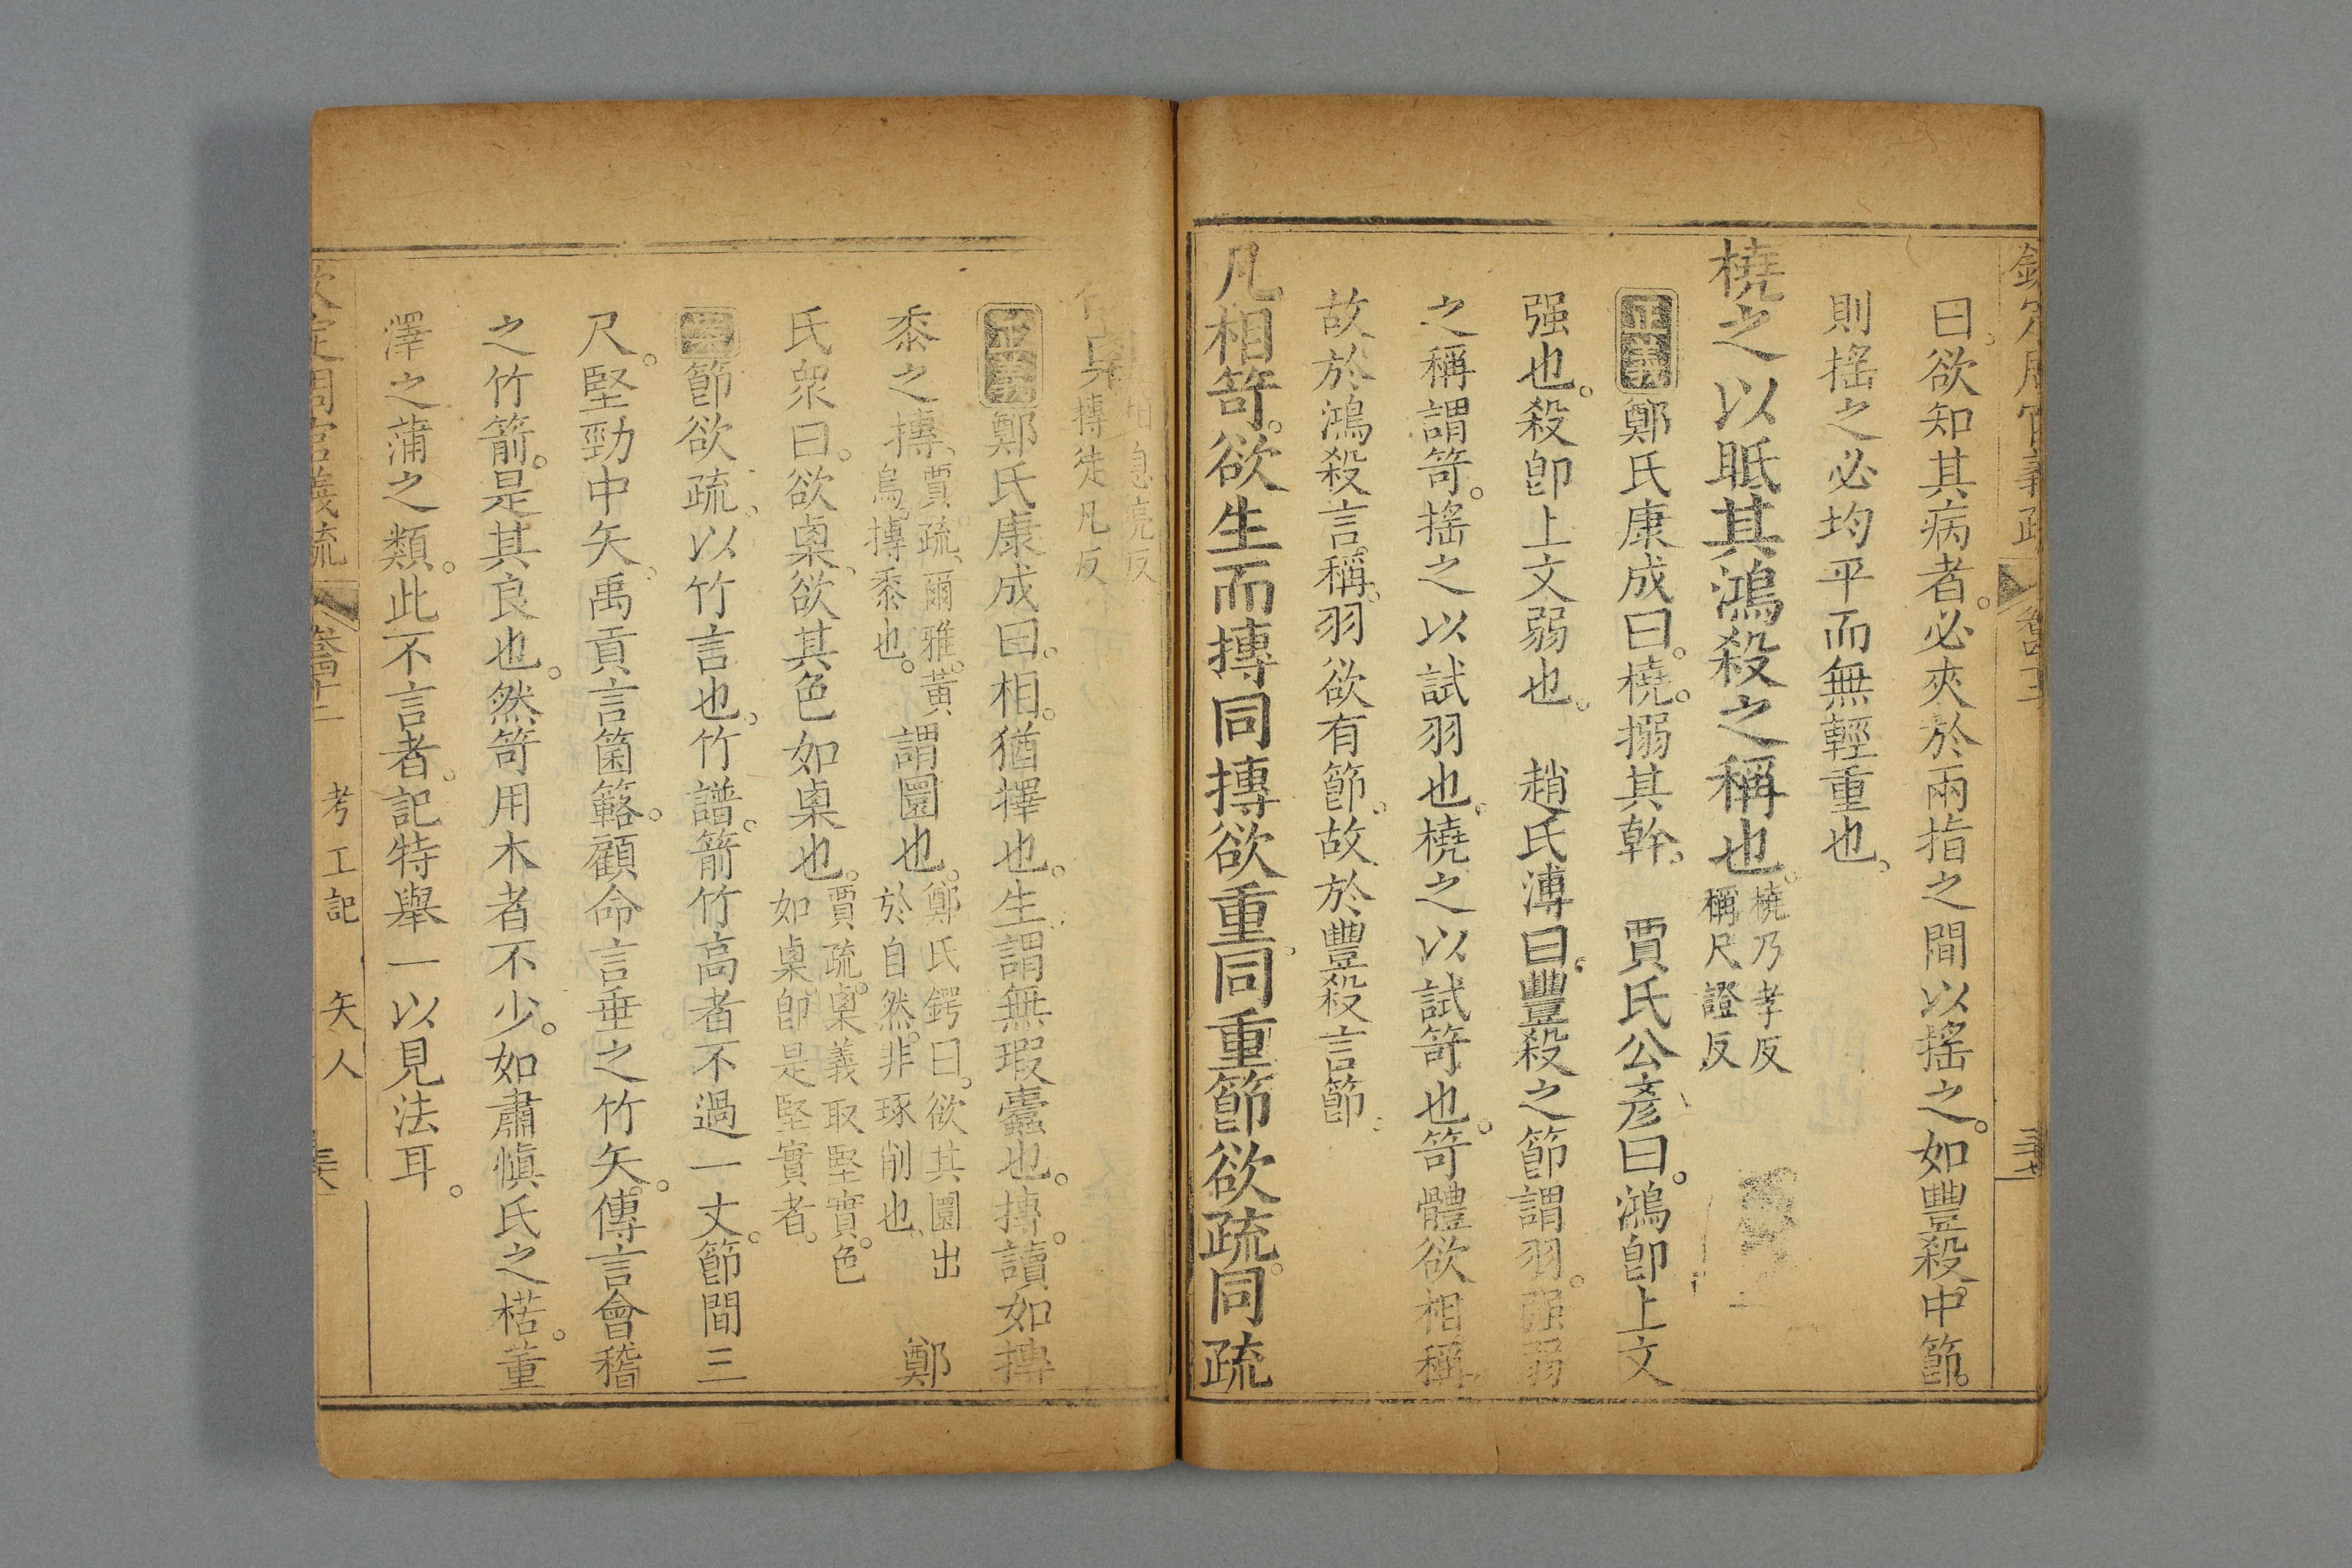 欽定周官義疏 卷四十三 三十七
曰欲知其病者必夾於兩指之間以搖之如豐殺中節
則搖之必均平而無輕重也
橈之以眡其鴻殺之稱也橈乃孝反稱尺證反
正義鄭氏康成曰橈搦其幹 賈氏公彥曰鴻卽上文
强也殺卽上文弱也 趙氏溥曰豐殺之節謂羽强弱
之稱謂笴搖之以試羽也橈之以試笴也笴體欲相稱
故於鴻殺言稱羽欲有節故於豐殺言節
凡相笴欲生而摶同摶欲重同重節欲疏同疏
欲㮚相息亮反摶徒凡反
正義鄭氏康成曰相猶擇也生謂無瑕蠹也摶讀如摶
黍之摶賈疏爾雅黃鳥摶黍也謂圜也鄭氏鍔曰欲其圜出於自然非琢削也 鄭
氏衆曰欲㮚欲其色如㮚也賈疏㮚義取堅實色如㮚卽是堅實者
案節欲疏以竹言也竹譜箭竹高者不過一丈節間三
尺堅勁中矢禹貢言箘簵顧命言垂之竹矢傳言會稽
之竹箭是其良也然笴用木者不少如肅愼氏之楛董
澤之蒲之類此不言者記特舉一以見法耳
欽定周官義疏 卷四十三 考工記 矢人 三十八